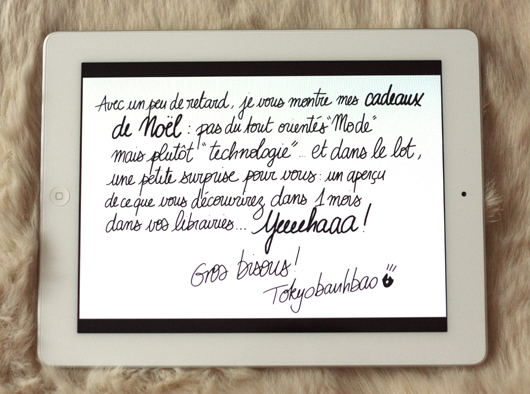 Avec un peu de retard, je vous montre mes cadeaux
de Noël : pas du tout orientés "Mode"
mais plutôt "technologie"... et dans le lot,
une petite surprise pour vous : un aperçu
de ce que vous découvrirez dans 1 mois
dans vos librairies... Yeeehaaa !
Gros bisous !
Tokyobanhbao